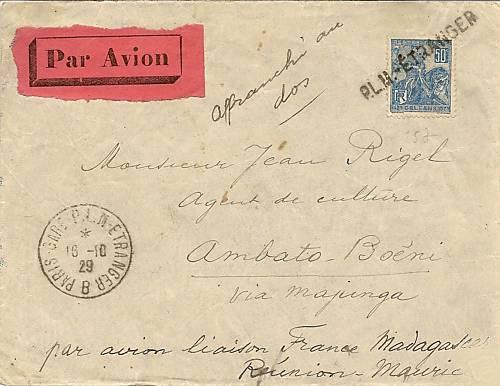 Par Avion
affranchi au
dos
P.L.M.-ETRANGER
50c
RF
ORLEANS
Monsieur Jean Rigel
Agent de culture
Ambato-Boéni
via majunga
PARIS-GARE P.L.M-ETRANGER B
*
16 -10
29
par avion liaison France Madagascar
Réunion-Mauric